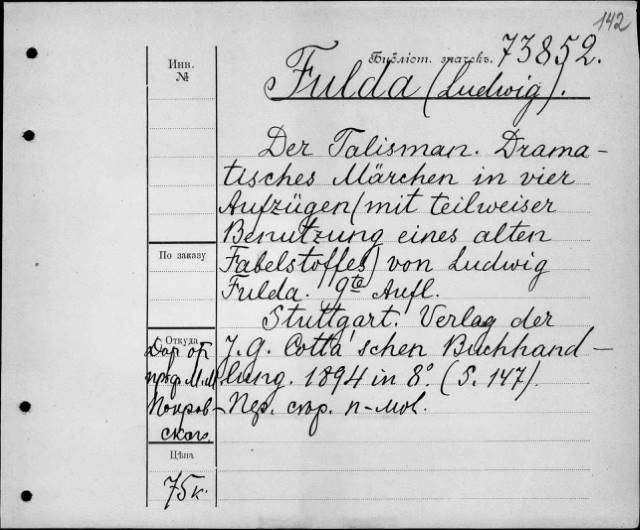 142
Библіот. значекъ. 73852.
Инв.
№
Fulda (Ludwig).
Der Talisman. Drama-
tisches Märchen in vier
Aufzügen (mit teilweiser
Benutzung eines alten
Fabelstoffes) von Ludwig
Fulda. 9te Aufl.
Stuttgart. Verlag der
J. G. Cotta'schen Buchhand-
lung. 1894 in 8°. (S. 147).
Пер. стор.
По заказу
Откуда
Дар от
М. М.
Покров-
скаго
Цѣна
75 к.